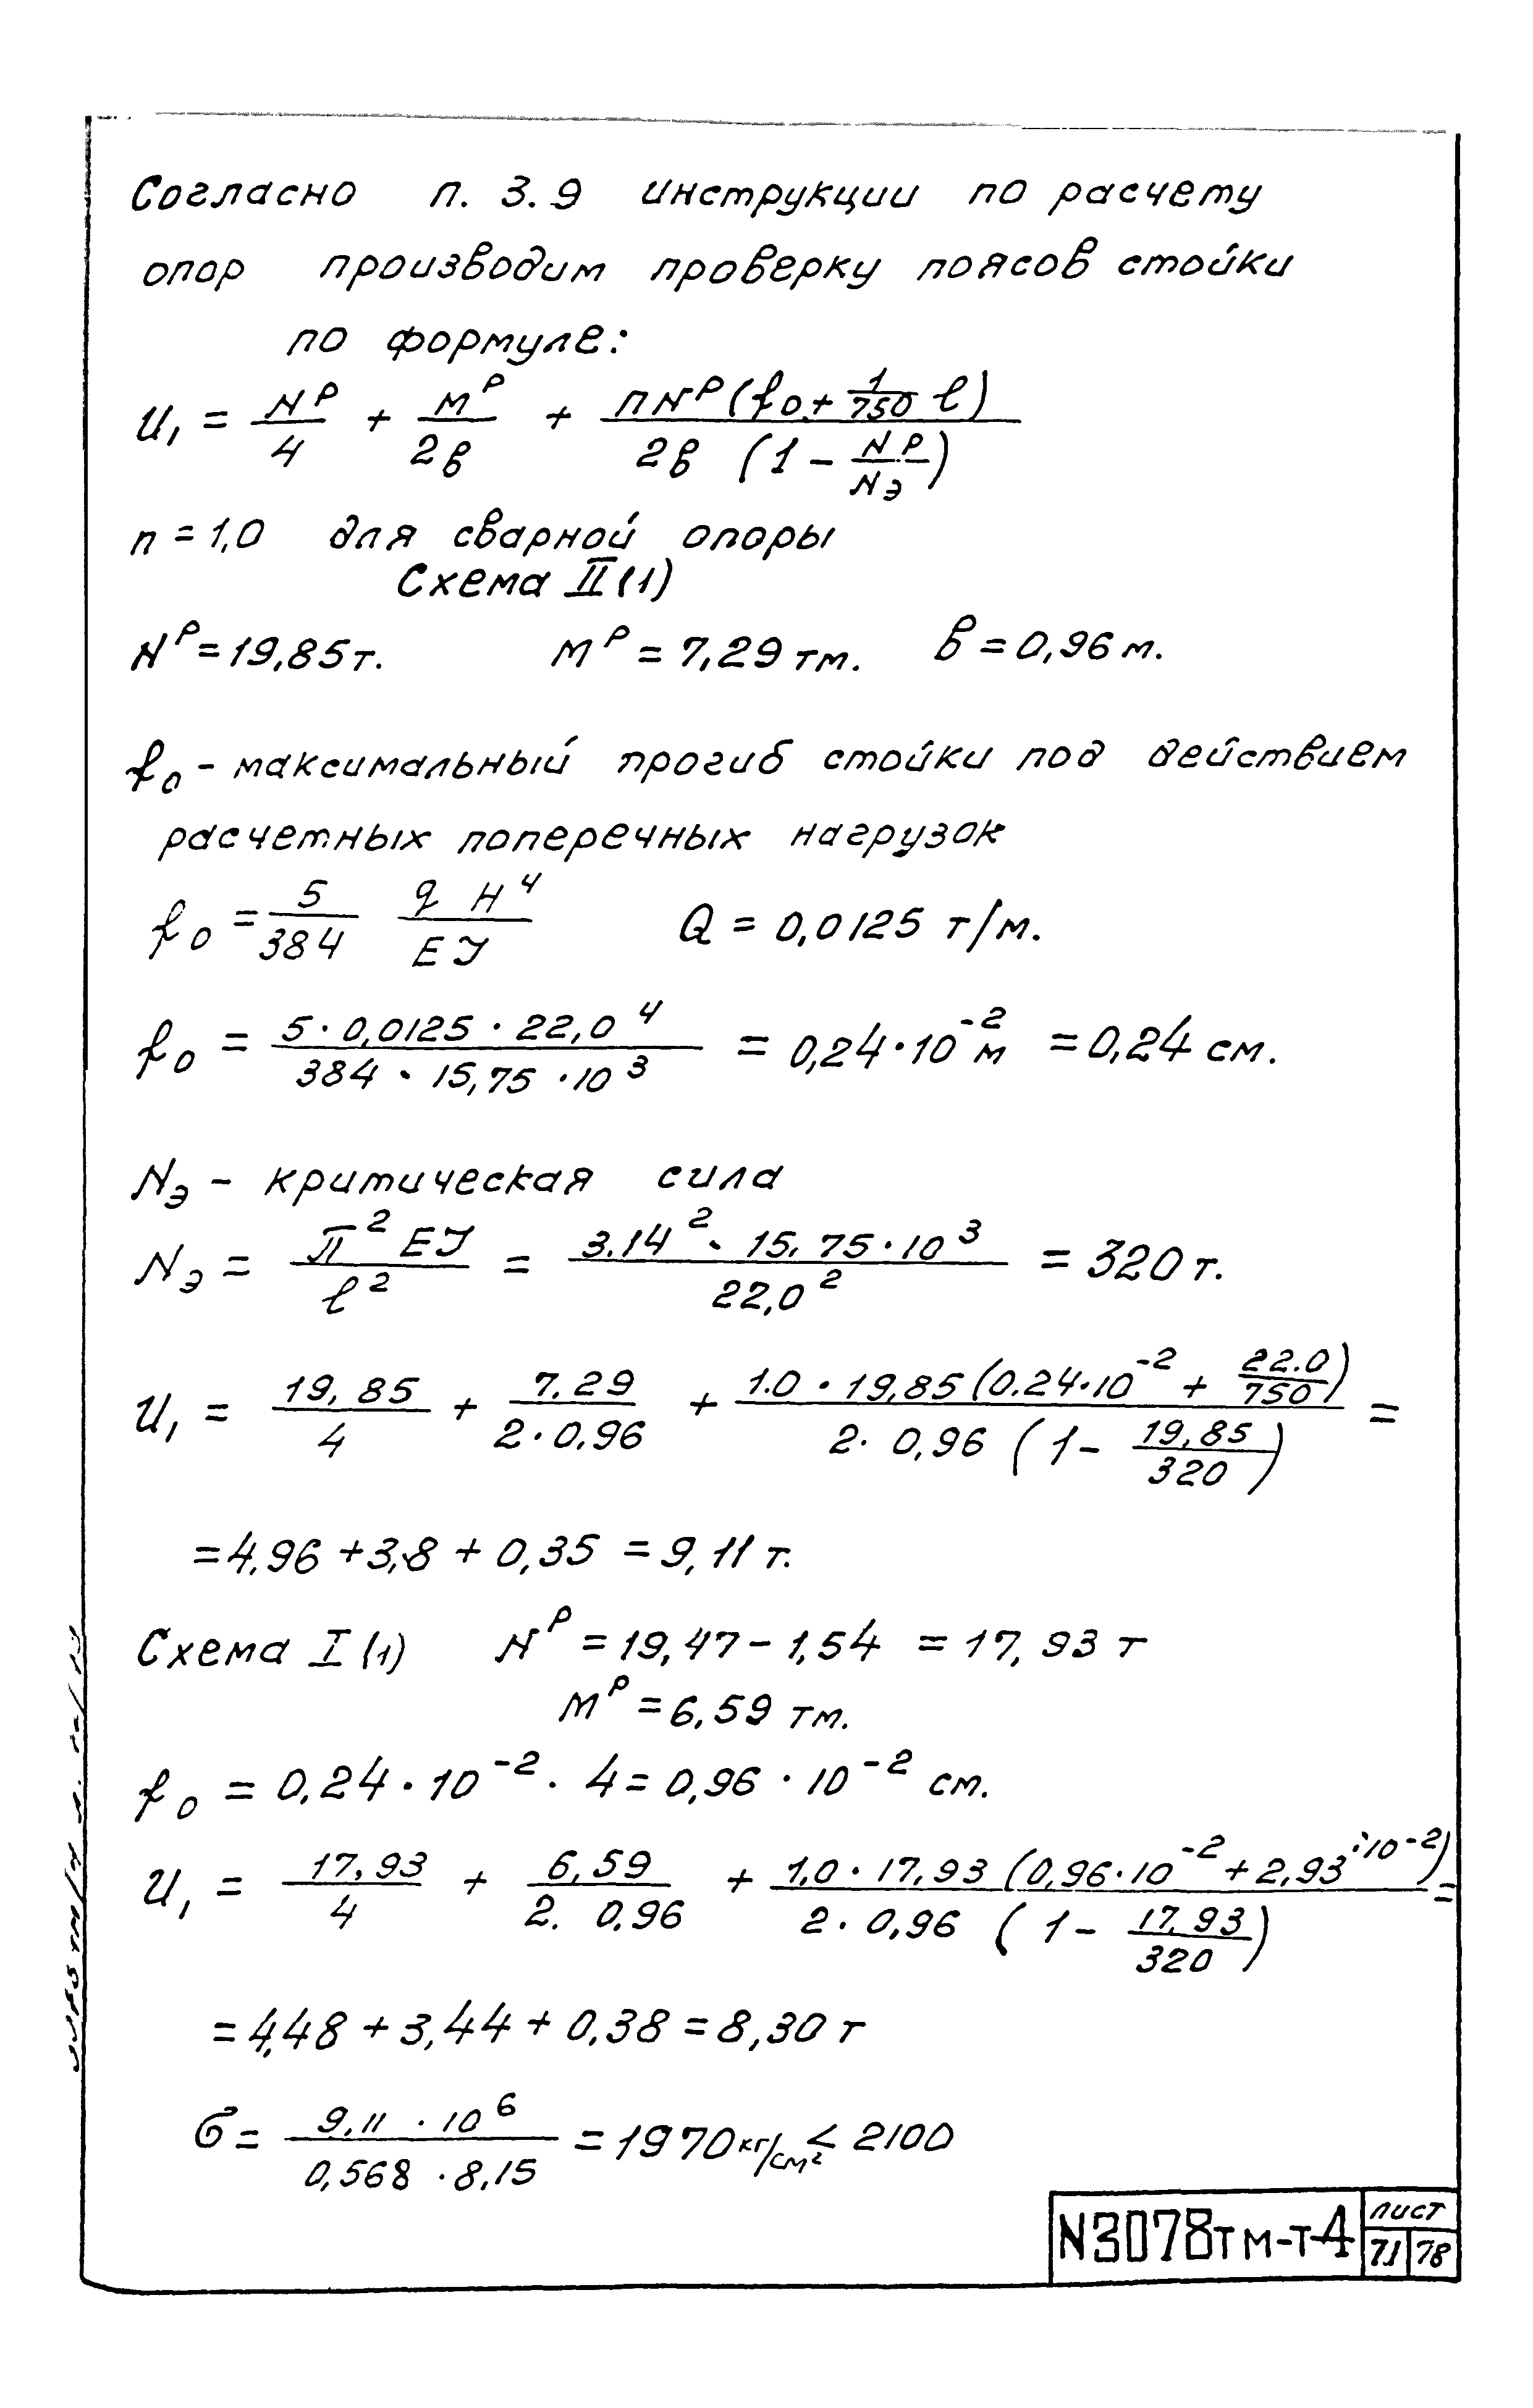 Согласно п. 3.9 инструкции по расчету
опор производим проверку поясов стойки
по формуле:
U₁ = Nᴾ/4 + Mᴾ/2в + пNᴾ(f₀ + 1/750 ℓ) / 2в (1 - Nᴾ/Nэ)
n = 1,0 для сварной опоры
Схема II (1)
Nᴾ = 19,85т. Mᴾ = 7,29 тм. в = 0,96 м.
f₀ - максимальный прогиб стойки под действием
расчетных поперечных нагрузок
f₀ = 5/384 q H⁴/EJ Q = 0,0125 т/м.
f₀ = 5 · 0,0125 · 22,0⁴ / 384 · 15,75 · 10³ = 0,24 · 10⁻² м = 0,24 см.
Nэ - критическая сила
Nэ = π² EJ / ℓ² = 3.14² · 15,75 · 10³ / 22,0² = 320 т.
U₁ = 19,85/4 + 7.29/2 · 0.96 + 1.0 · 19,85 (0.24 · 10⁻² + 22.0/750) / 2 · 0,96 (1 - 19,85/320) =
= 4,96 + 3,8 + 0,35 = 9,11 т.
Схема I (1) Nᴾ = 19,47 - 1,54 = 17,93 т
Mᴾ = 6,59 тм.
f₀ = 0,24 · 10⁻² · 4 = 0,96 · 10⁻² см.
U₁ = 17,93/4 + 6,59/2. 0,96 + 1,0 · 17,93 (0,96 · 10⁻² + 2,93 · 10⁻²) / 2 · 0,96 (1 - 17,93/320) =
= 4,48 + 3,44 + 0,38 = 8,30 т
σ = 9,11 · 10⁶ / 0,568 · 8,15 = 1970 кг/см² ≤ 2100
N3078тм-т-4
лист
71 78